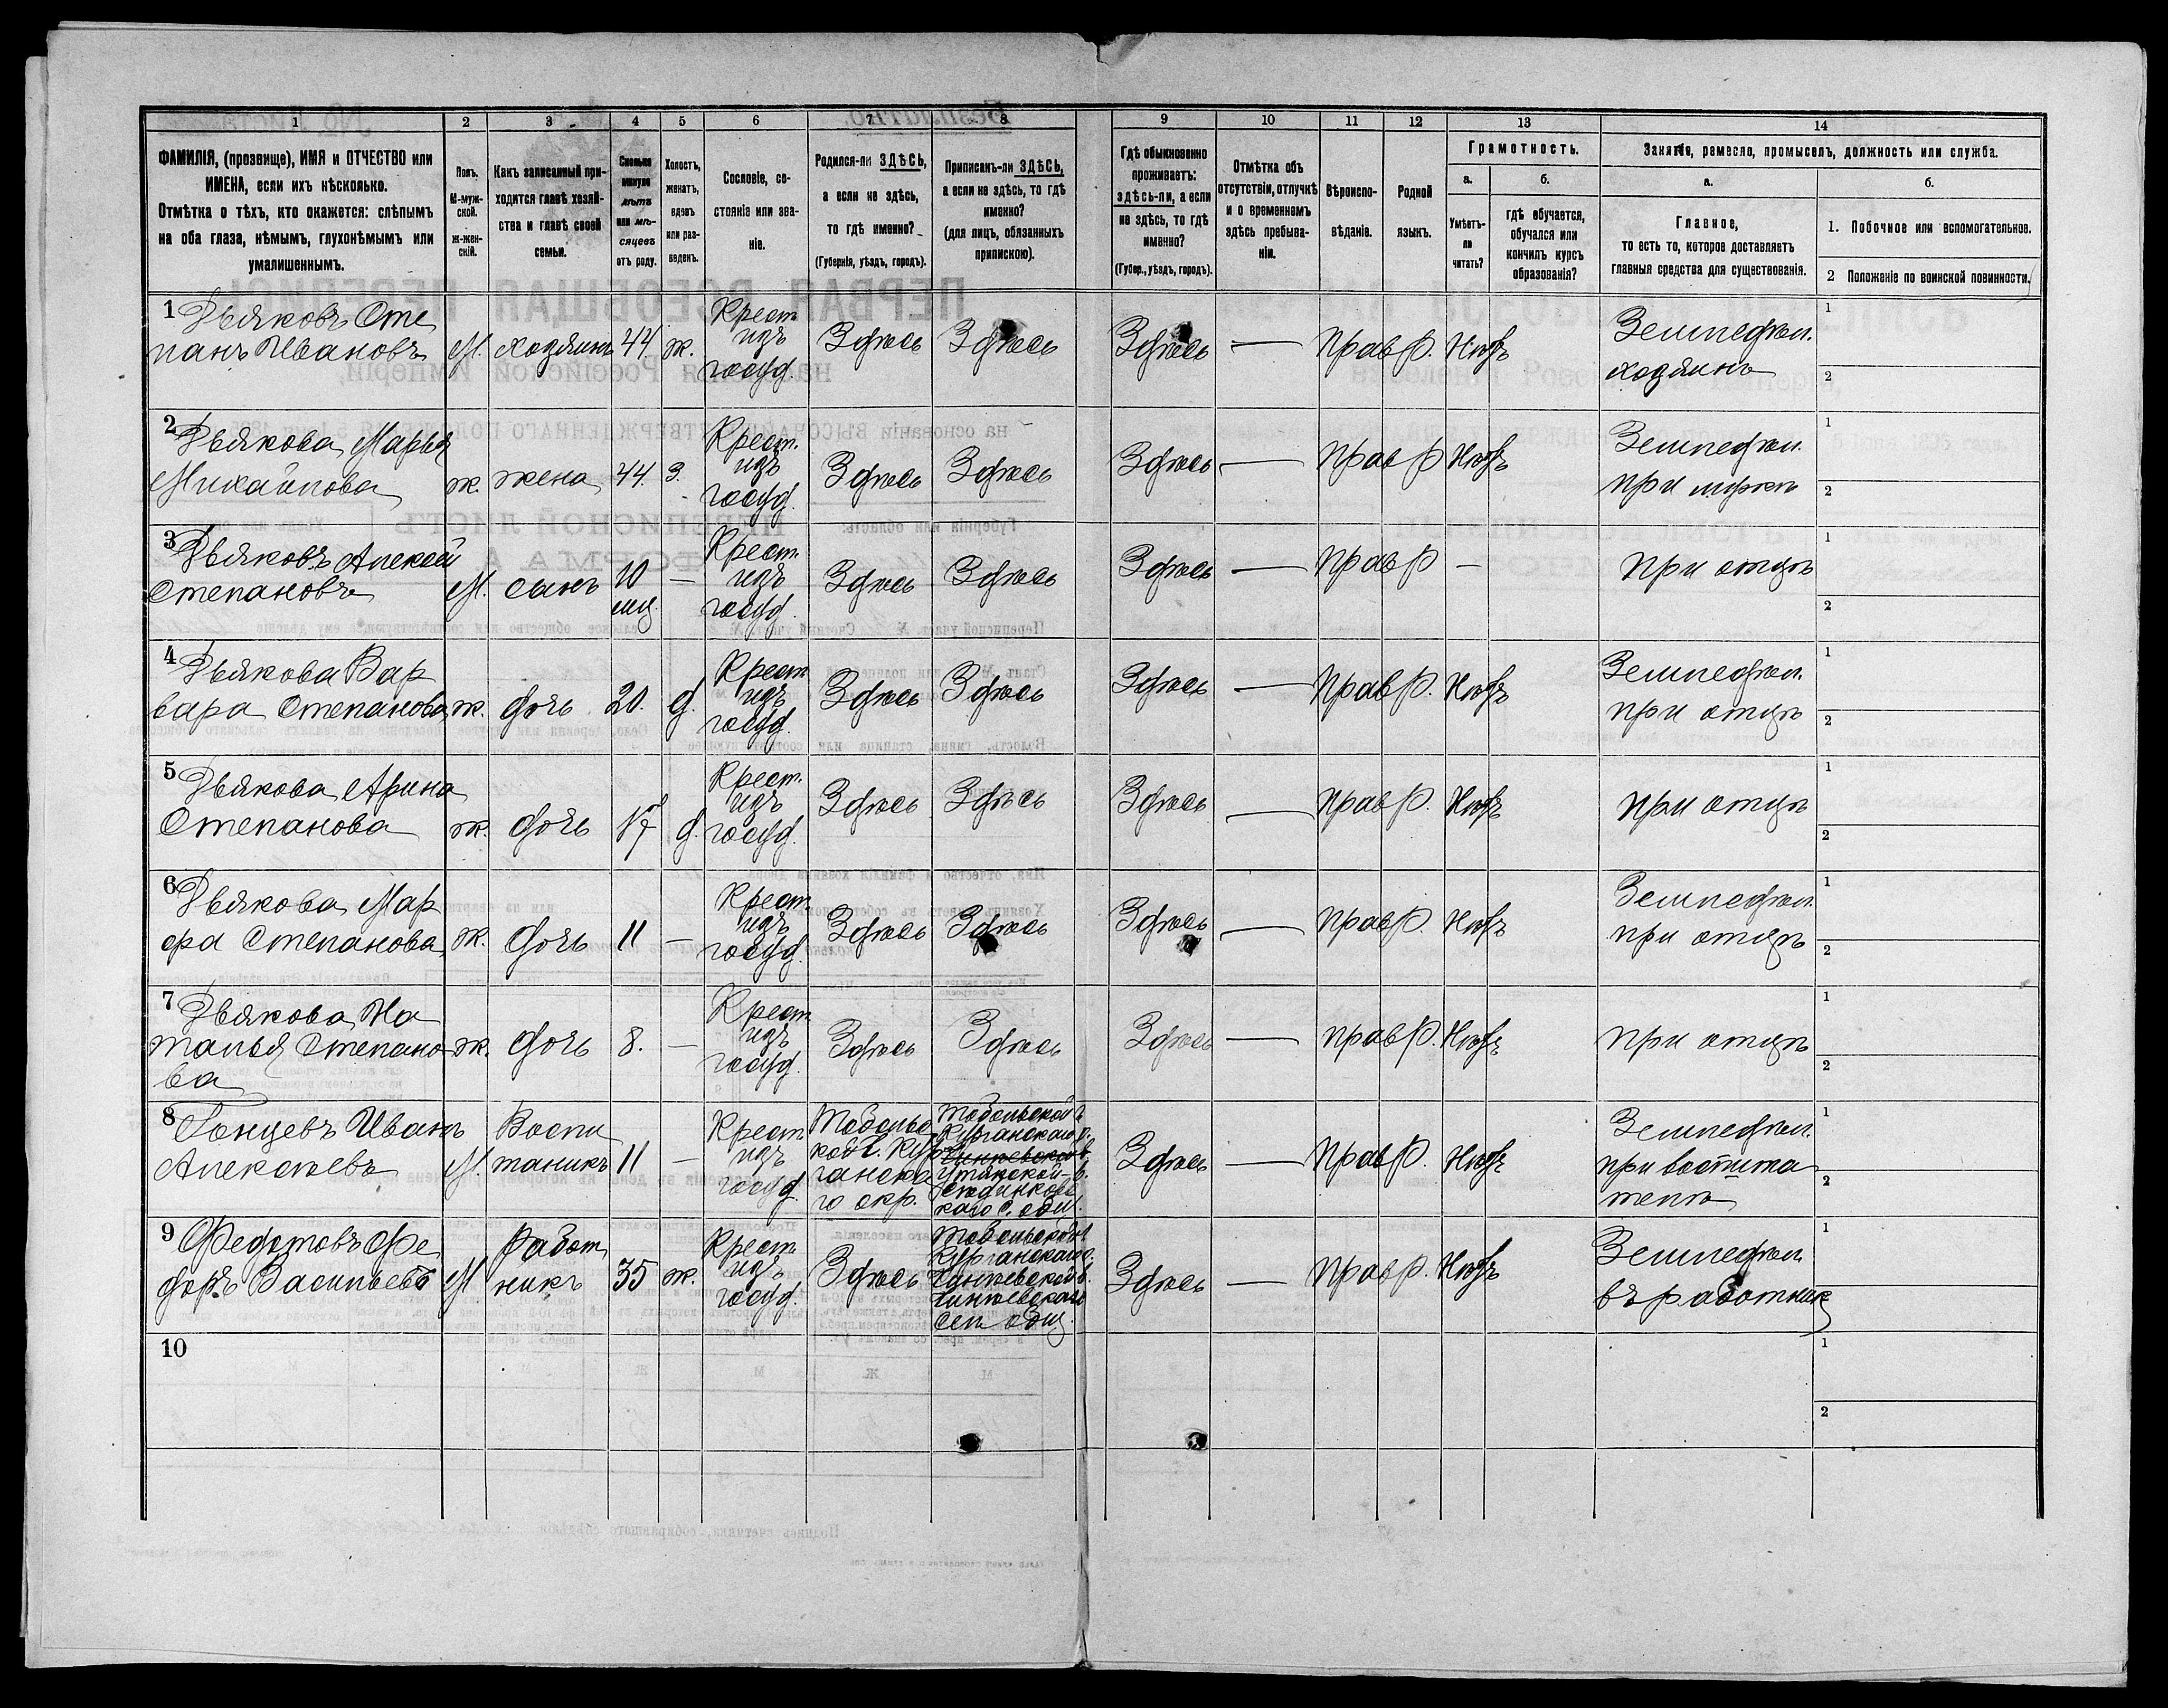 1 2 3 4 5 6 7 8 9 10 11 12 13 14
ФАМИЛІЯ, (прозвище), ИМЯ и ОТЧЕСТВО или
ИМЕНА, если ихъ нѣсколько.
Отмѣтка о тѣхъ, кто окажется: слѣпымъ
на оба глаза, нѣмымъ, глухонѣмымъ или
умалишеннымъ.
Полъ.
М-муж-
ской.
ж-жен-
скій.
Какъ записанный при-
ходится главѣ хозяй-
ства и главѣ своей
семьи.
Сколько
минуло
лѣтъ
или мѣ-
сяцевъ
отъ роду.
Холостъ,
женатъ,
вдовъ
или раз-
веденъ.
Сословіе, со-
стояніе или зва-
ніе.
Родился-ли ЗДѢСЬ,
а если не здѣсь,
то гдѣ именно?
(Губернія, уѣздъ, городъ).
Приписанъ-ли ЗДѢСЬ,
а если не здѣсь, то гдѣ
именно?
(для лицъ, обязанныхъ
припискою).
Гдѣ обыкновенно
проживаетъ:
здѣсь-ли, а если
не здѣсь, то гдѣ
именно?
(Губер., уѣздъ, городъ).
Отмѣтка объ
отсутствіи, отлучкѣ
и о временномъ
здѣсь пребыва-
ніи.
Вѣроиспо-
вѣданіе.
Родной
языкъ.
Грамотность.
а.
Умѣетъ-
ли
читать?
б.
гдѣ обучается,
обучался или
кончилъ курсъ
образованія?
Занятіе, ремесло, промыселъ, должность или служба.
а.
Главное,
то есть то, которое доставляетъ
главныя средства для существованія.
б.
1. Побочное или вспомогательное.
2 Положеніе по воинской повинности.
1 Дьяковъ Сте
панъ Ивановъ М. хозяинъ 44. ж. Крест. изъ госуд. Здѣсь Здѣсь Здѣсь — Прав Р. Нѣтъ Земледѣл. хозяинъ 1 2
2 Дьякова Марья
Михайлова ж. жена 44. з. Крест. изъ госуд. Здѣсь Здѣсь Здѣсь — Прав Р Нѣтъ Земледѣл. при мужѣ 1 2
3 Дьяковъ Алексѣй
Степановъ М. сынъ 10 мц. — Крест. изъ госуд. Здѣсь Здѣсь Здѣсь — Прав Р — при отцѣ 1 2
4 Дьякова Вар
вара Степанова ж. дочь 20. д. Крест изъ госуд. Здѣсь Здѣсь Здѣсь — Прав Р. Нѣтъ Земледѣл. при отцѣ 1 2
5 Дьякова Арина
Степанова ж. дочь 17 д. Крест. изъ госуд. Здѣсь Здѣсь Здѣсь — Прав Р. Нѣтъ при отцѣ 1 2
6 Дьякова Мар
фа Степанова ж. дочь 11 — Крест. изъ госуд. Здѣсь Здѣсь Здѣсь — Прав Р. Нѣтъ Земледѣл. при отцѣ 1 2
7 Дьякова На
талья Степано
ва ж. дочь 8. — Крест изъ госуд. Здѣсь Здѣсь Здѣсь — Прав Р. Нѣтъ при отцѣ 1 2
8 Иванъ
Алексѣевъ М. Воспи
таникъ 11 — Крест изъ госуд. Тоболь
ской г. Кур
ганска
го окр. Тобольской г
Курганскаго о.
Утякской в.
каго с. общ. Здѣсь — Прав Р. Нѣтъ Земледѣл.
при воспита
телѣ 1 2
9 Федотовъ Фе
доръ Васильевъ М Работ
никъ 35 ж. Крест изъ госуд. Здѣсь Тобольской г
Курганскаго о.
сел общ. Здѣсь — Прав Р. Нѣтъ Земледѣл.
въ работник 1 2
10 1 2